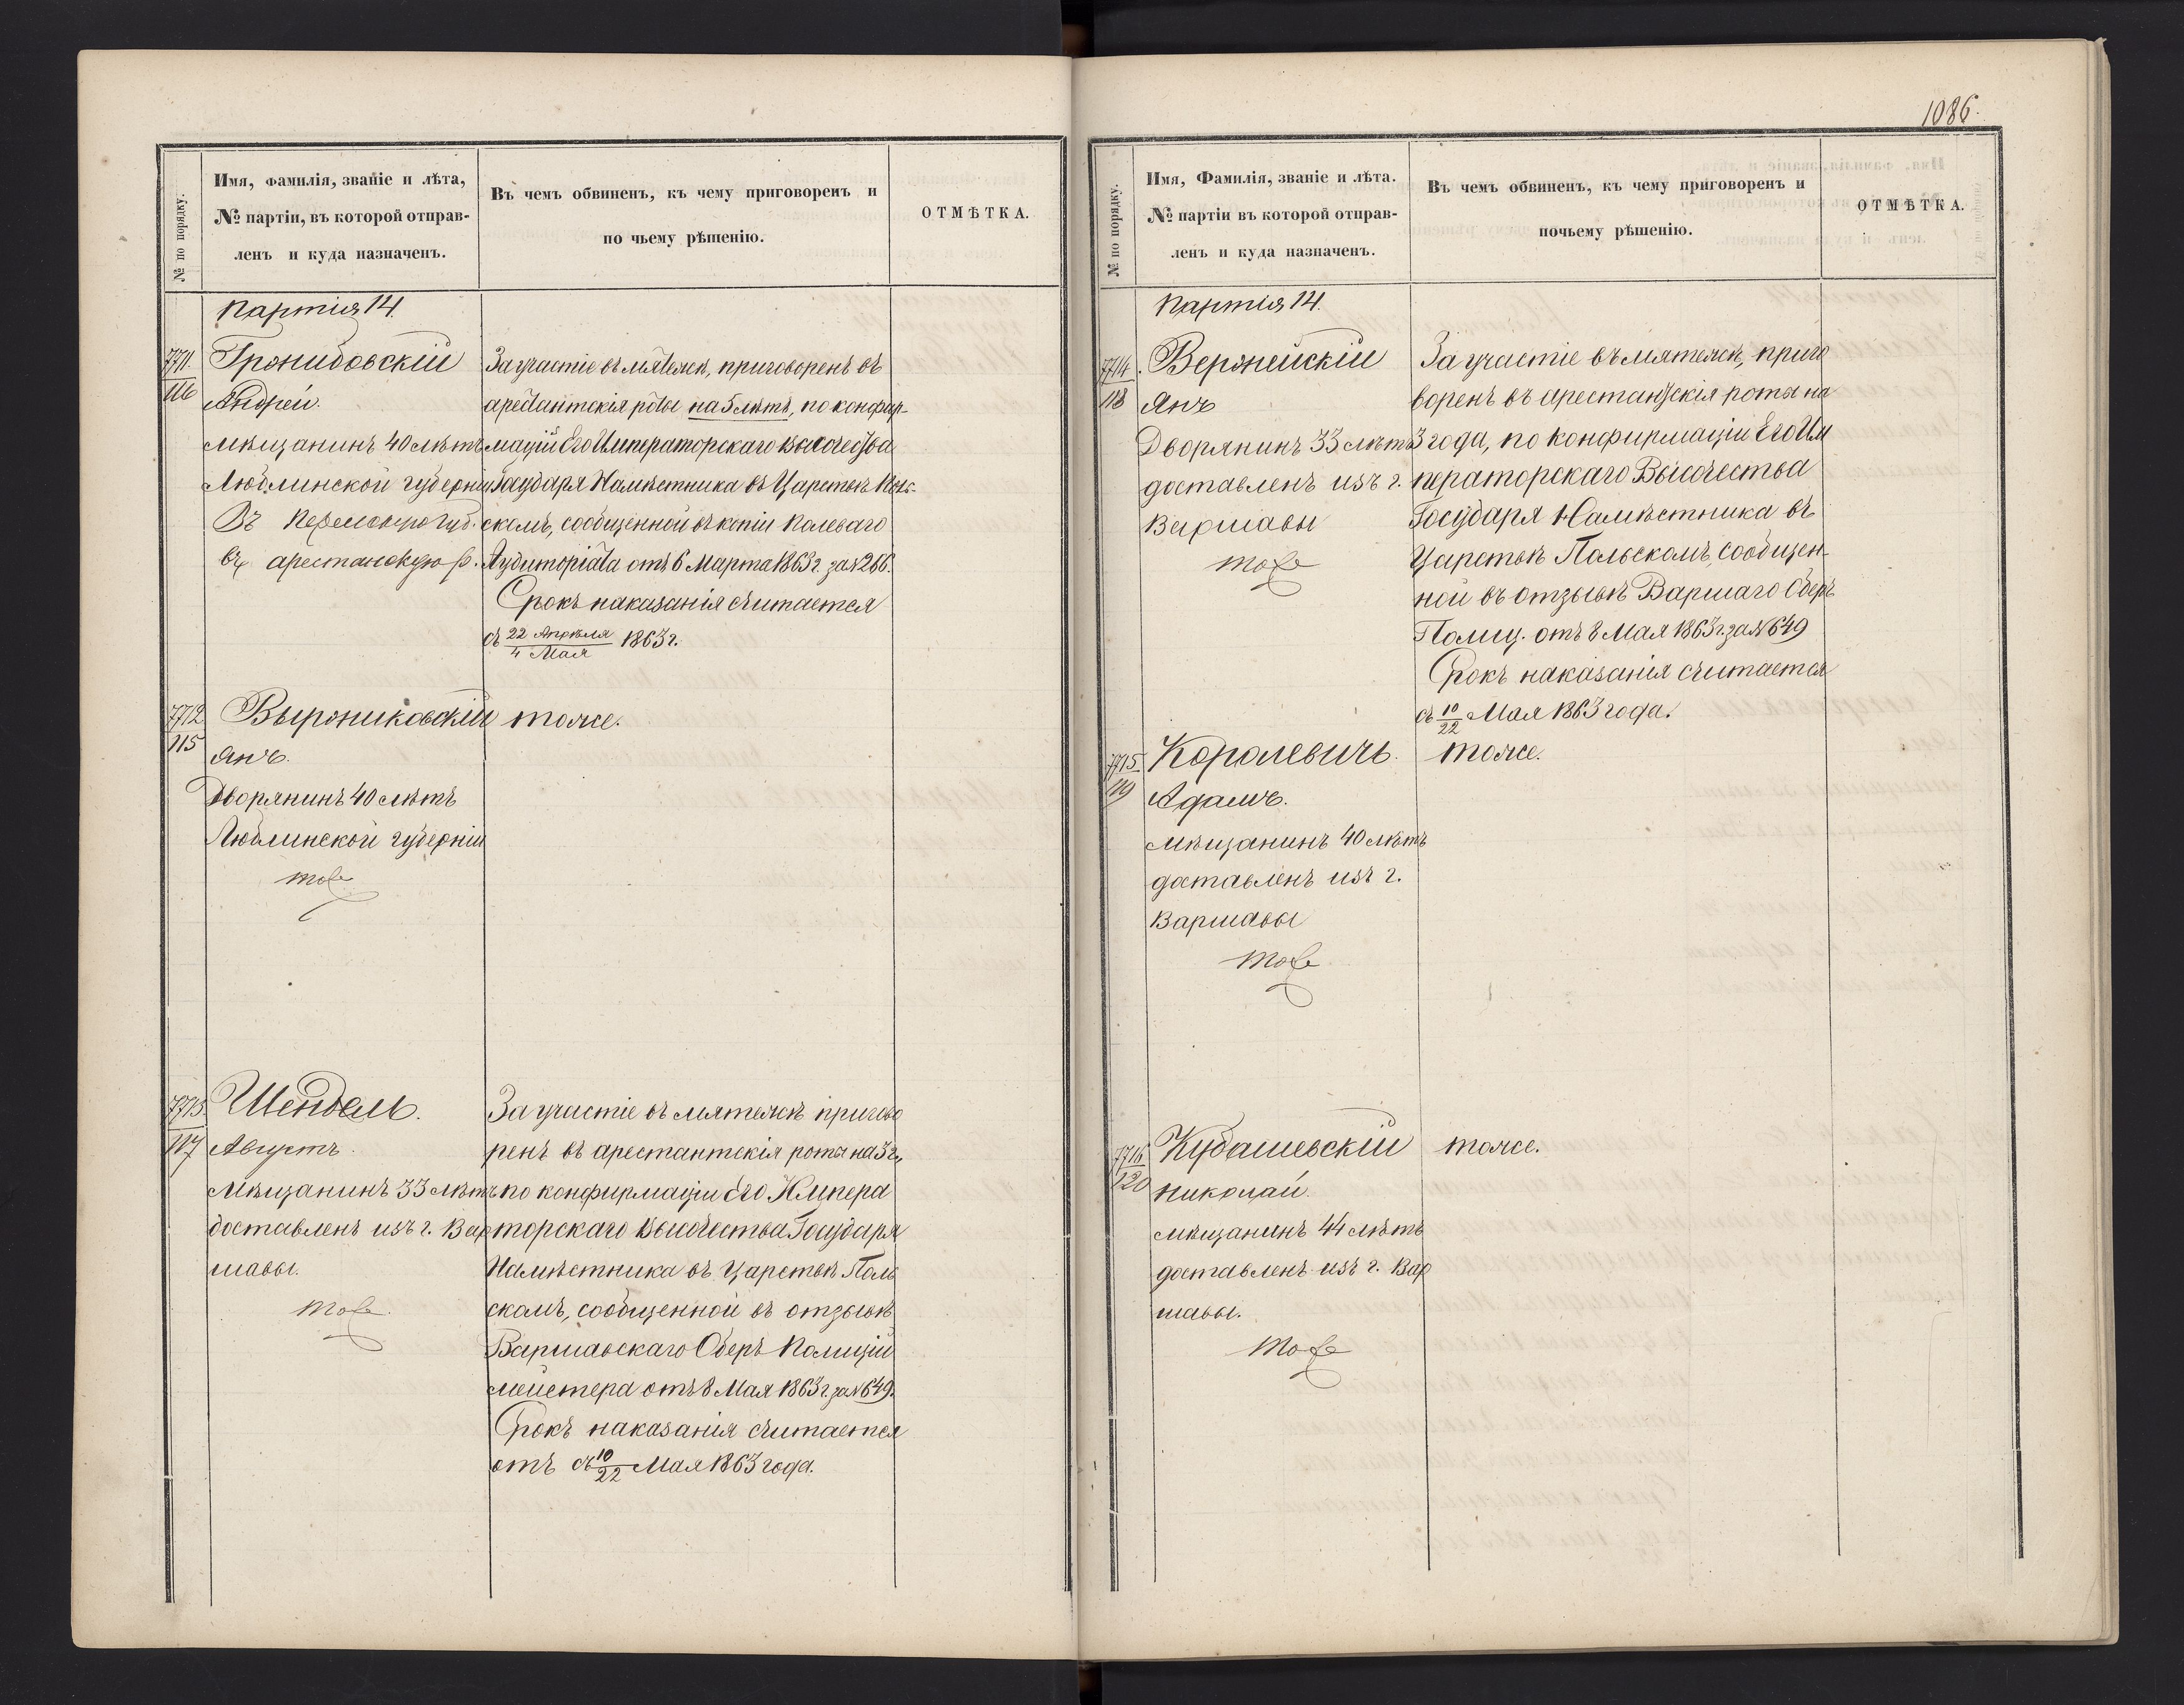 № по порядку.
Имя, Фамилія, званіе и лѣта,
№ партіи, въ которой отправ-
ленъ и куда назначенъ.
Въ чемъ обвиненъ, къ чему приговоренъ и
по чьему рѣшенію.
ОТМѢТКА.
Партія 14.
7711.
116
Гронидовскій
Андрей.
Мѣщанинъ 40 лѣтъ
Люблинской губерніи
Въ губ.
въ арестанскую р.
За участіе въ мятежѣ, приговоренъ въ
арестантскія роты на 5 лѣтъ, по конфир-
маціи Его Императорскаго Высочества
Государя Намѣстника въ Царствѣ Поль-
скомъ, сообщенной въ копіи Полеваго
Аудиторіата отъ 6 Марта 1863 г. за № 266.
Срокъ наказанія считается
съ 22 Апрѣля / 4 Мая 1863 г.
7712
115
Выржиковскій
Янъ.
Дворянинъ 40 лѣтъ
Люблинской губерніи
тоже
тоже.
7713
117
Шендель.
Августъ.
Мѣщанинъ 33 лѣтъ
доставленъ изъ г. Вар
шавы.
тоже.
За участіе въ мятежѣ пригово
ренъ въ арестантскія роты на 3 г.,
по конфирмаціи Его Импера
торскаго Высочества Государя
Намѣстника въ Царствѣ Поль
скомъ, сообщенной въ отзывѣ
Варшавскаго Оберъ Полиціи
мейстера отъ 8 Мая 1863 г. за № 649.
Срокъ наказанія считается
отъ съ 10/22 Мая 1863 года.
1086.
№ по порядку.
Имя, Фамилія, званіе и лѣта.
№ партіи въ которой отправ-
ленъ и куда назначенъ.
Въ чемъ обвиненъ, къ чему приговоренъ и
почьему рѣшенію.
ОТМѢТКА.
Партія 14.
7714.
118
Вержейскій
Янъ
Дворянинъ 33 лѣтъ
доставленъ изъ г.
Варшавы
тоже
За участіе въ мятежѣ, приго
воренъ въ арестантскія роты на
3 года, по конфирмаціи Его Им
ператорскаго Высочества
Государя Намѣстника въ
Царствѣ Польскомъ, сообщен-
ной въ отзывѣ Варшаго Оберъ
Полиц. отъ 8 Мая 1863 г. за № 649
Срокъ наказанія считается
съ 10/22 Мая 1863 года.
7715.
119
Королевичъ.
Адамъ.
Мѣщанинъ 40 лѣтъ
доставленъ изъ г.
Варшавы
тоже
тоже.
7716
120
Кубашевскій
Николай.
Мѣщанинъ 44 лѣтъ
доставленъ изъ г. Вар
шавы.
тоже
тоже.